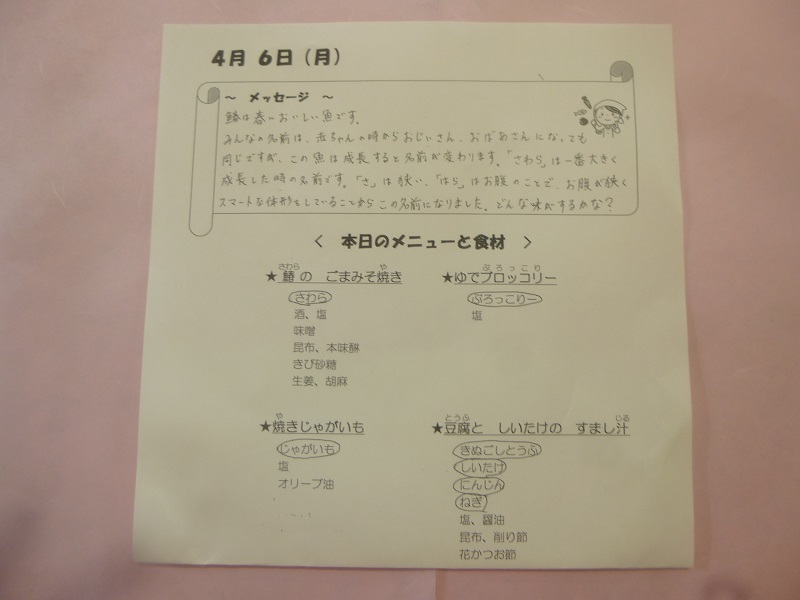 4月 6日（月）
～ メッセージ ～
鰆は春においしい魚です。
みんなの名前は、赤ちゃんの時からおじいさん、おばあさんになっても
同じですが、この魚は成長すると名前が変わります。「さわら」は一番大きく
成長した時の名前です。「さ」は狭い、「はら」はお腹のことで、お腹が狭く
スマートな体形をしていることからこの名前になりました。どんな味がするかな？
〈 本日のメニューと食材 〉
さわら や
★鰆の ごまみそ焼き
さわら
酒、塩
味噌
昆布、本味醂
きび砂糖
生姜、胡麻
ぶろっこり
★ゆでブロッコリー
ぶろっこりー
塩
や
★焼きじゃがいも
じゃがいも
塩
オリーブ油
とうふ じる
★豆腐と しいたけの すまし汁
きぬごしとうふ
しいたけ
にんじん
ねぎ
塩、醤油
昆布、削り節
花かつお節